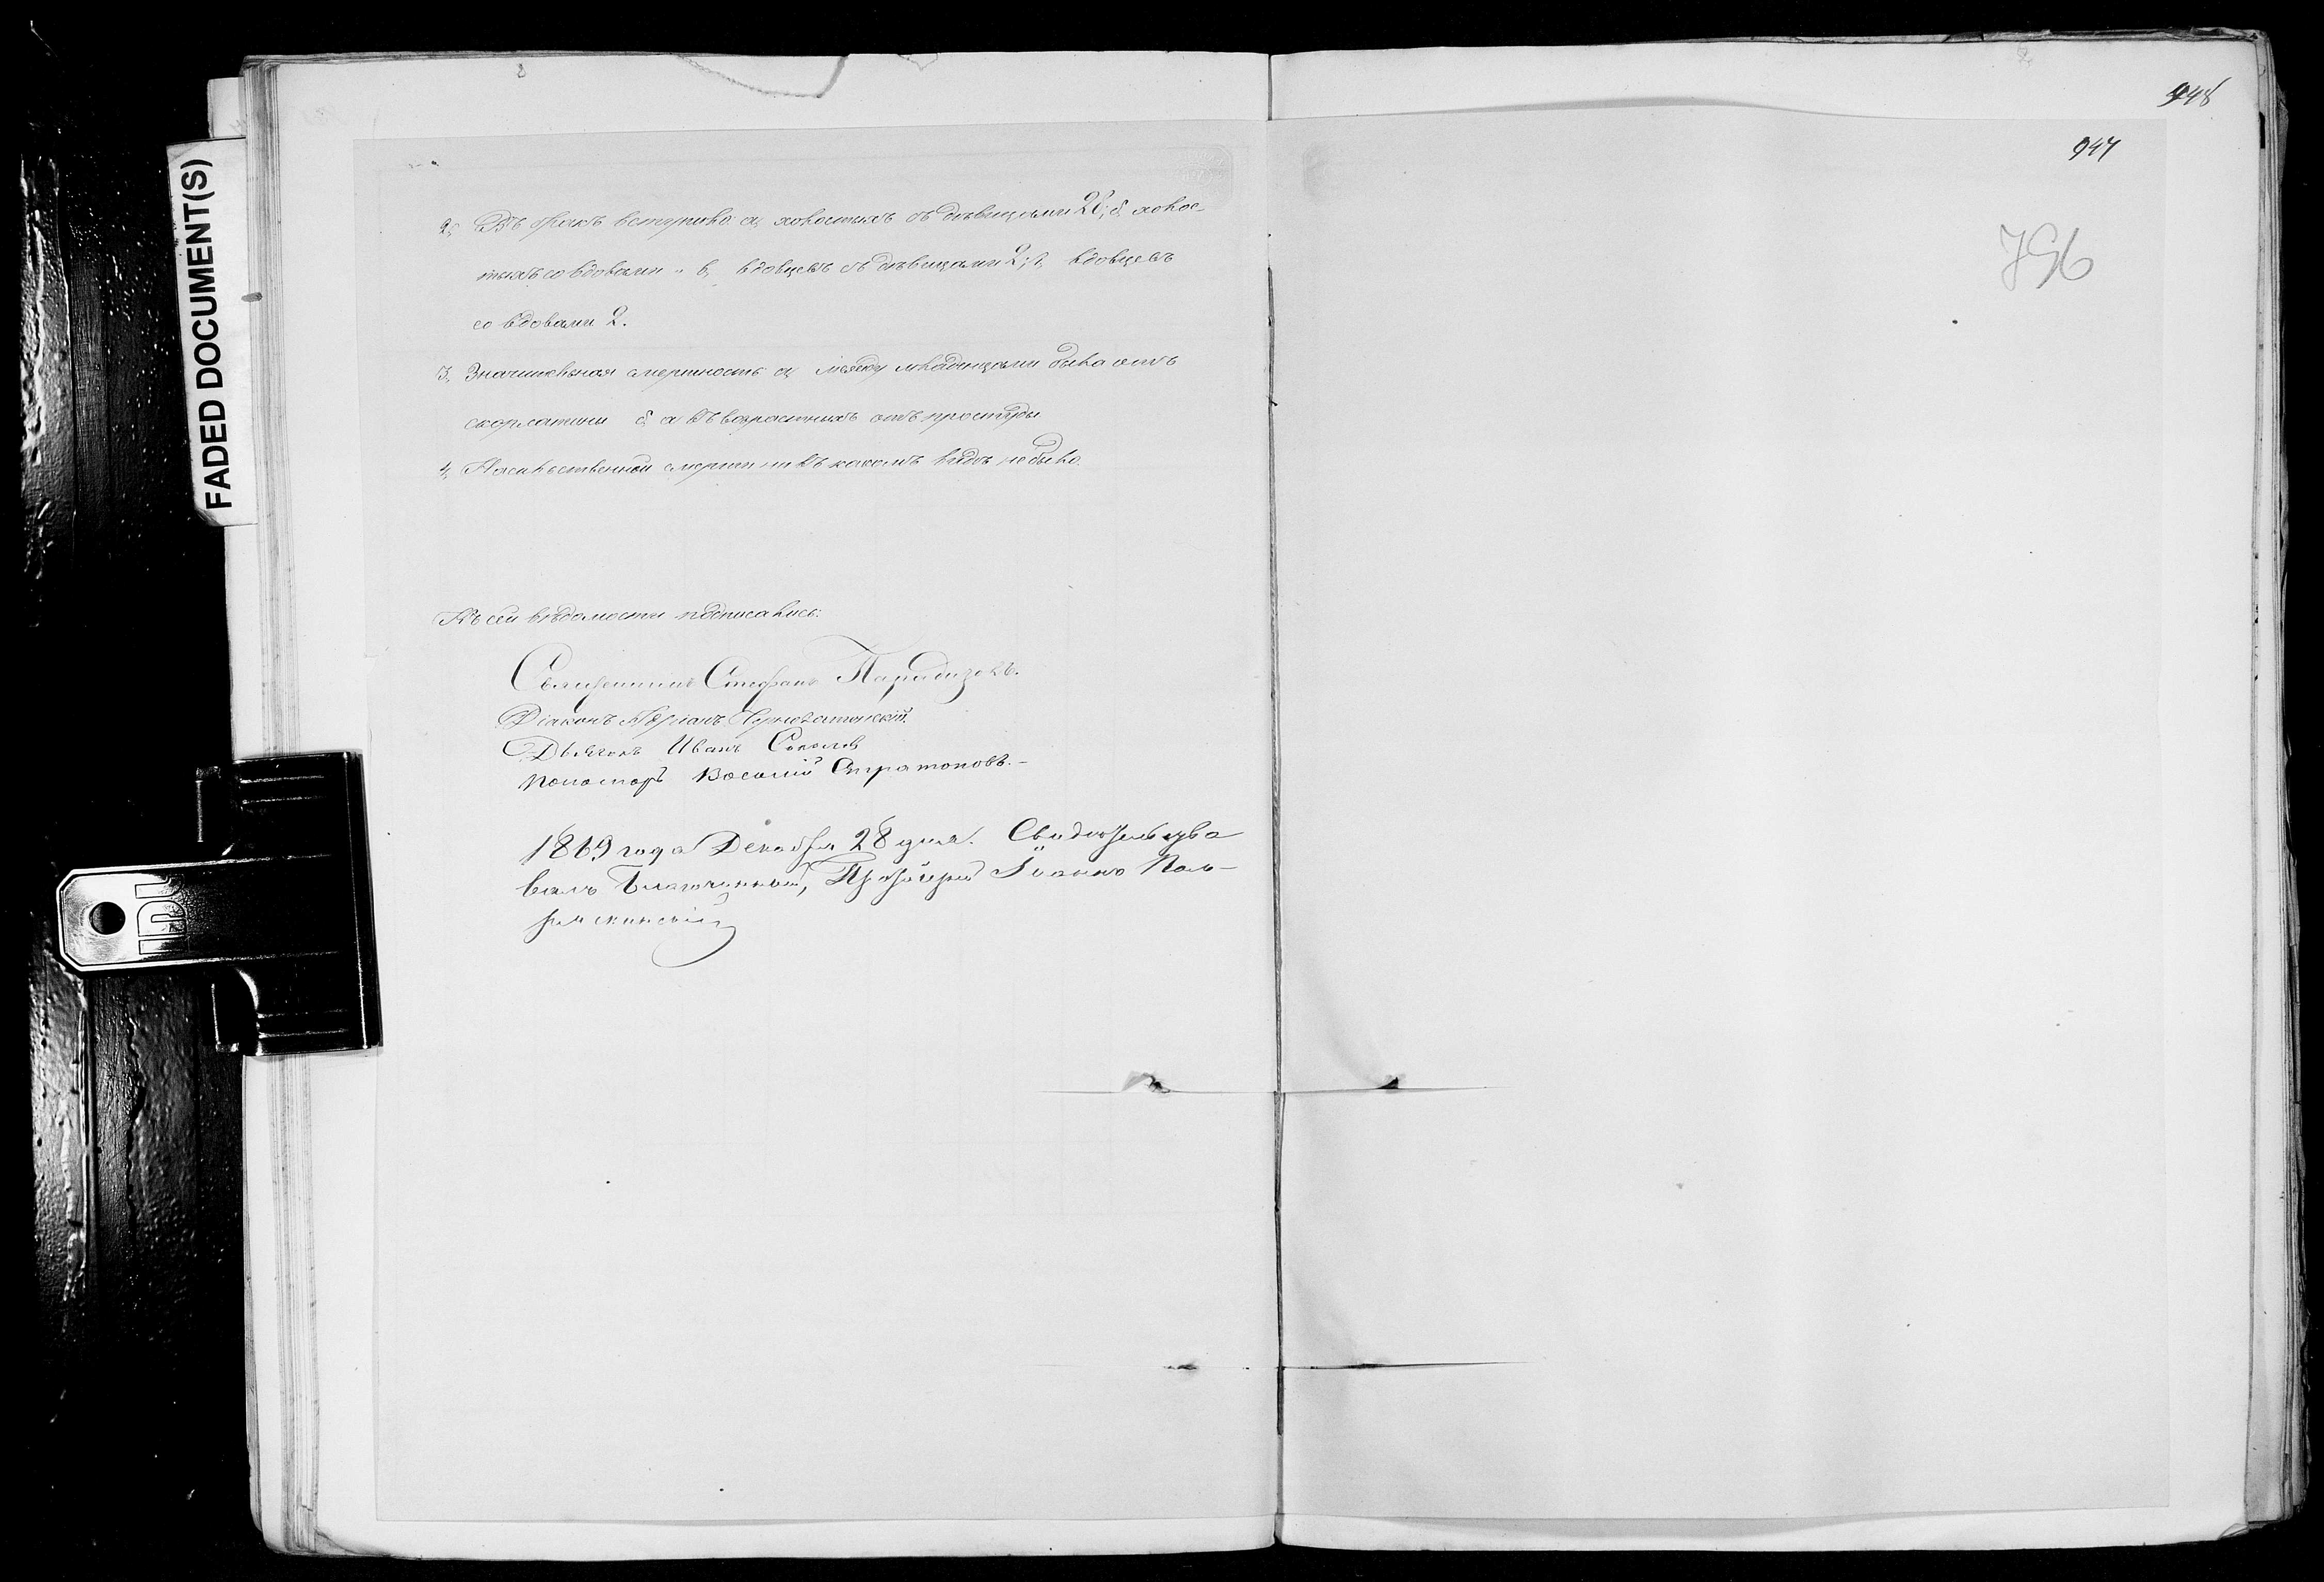 948
947
796
FADED DOCUMENT(S)
2, Въ бракъ вступило: а, холостыхъ съ дѣвицами 20; б, холос-
тыхъ со вдовами " в, вдовцевъ съ дѣвицами 2; г, вдовцевъ
со вдовами 2.
3, Значительная смертность: а, между младенцами была отъ
скорлатины б, а въ возрастныхъ отъ простуды
4, Насильственной смерти ни въ какомъ видѣ не было.
Къ сей вѣдомости подписались:
Священникъ Стефанъ Парадизовъ.
Діаконъ Адріанъ
Дьячокъ Иванъ Соколов
Пономарь Василій Стратоновъ.-
1869 года Декабря 28 дня. Свидѣтельство-
валъ Благочинный, Протоіерей Іоаннъ
IDL